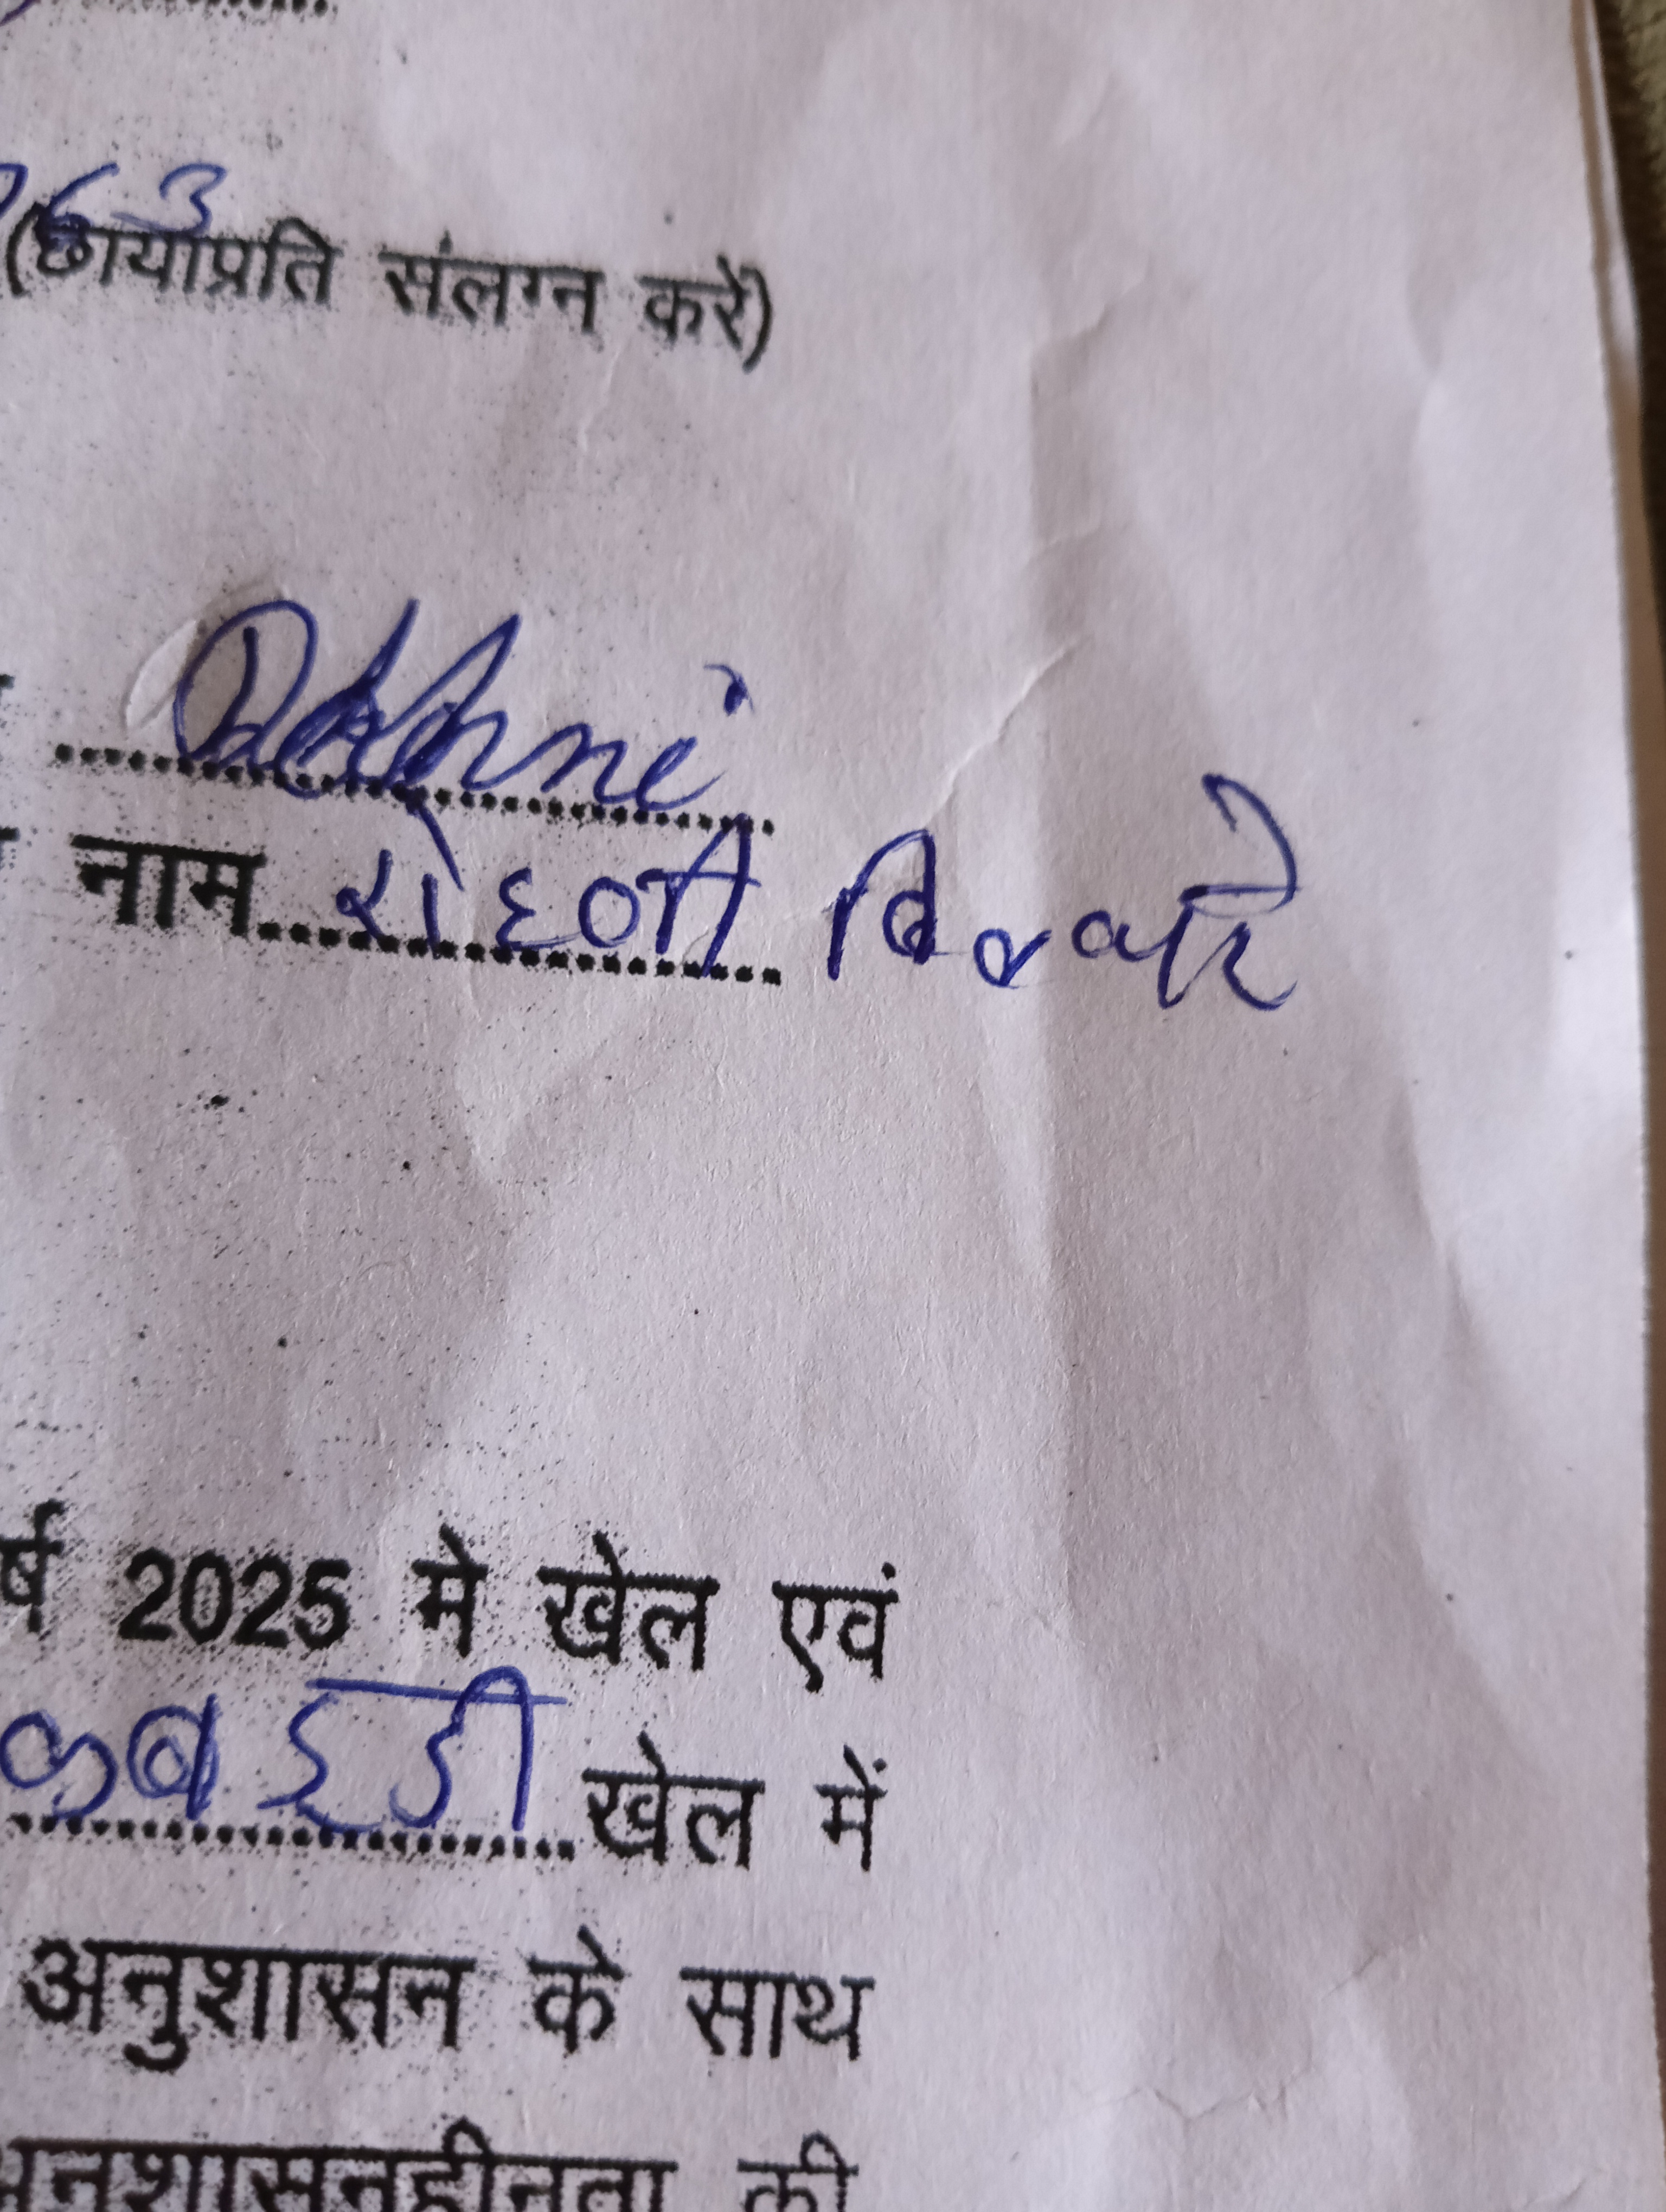 63
(छायाप्रति संलग्न करें)
नाम रोहणी
र्ष 2025 मे खेल एवं
कबड्डी खेल में
अनुशासन के साथ
अनुशासनहीनता की